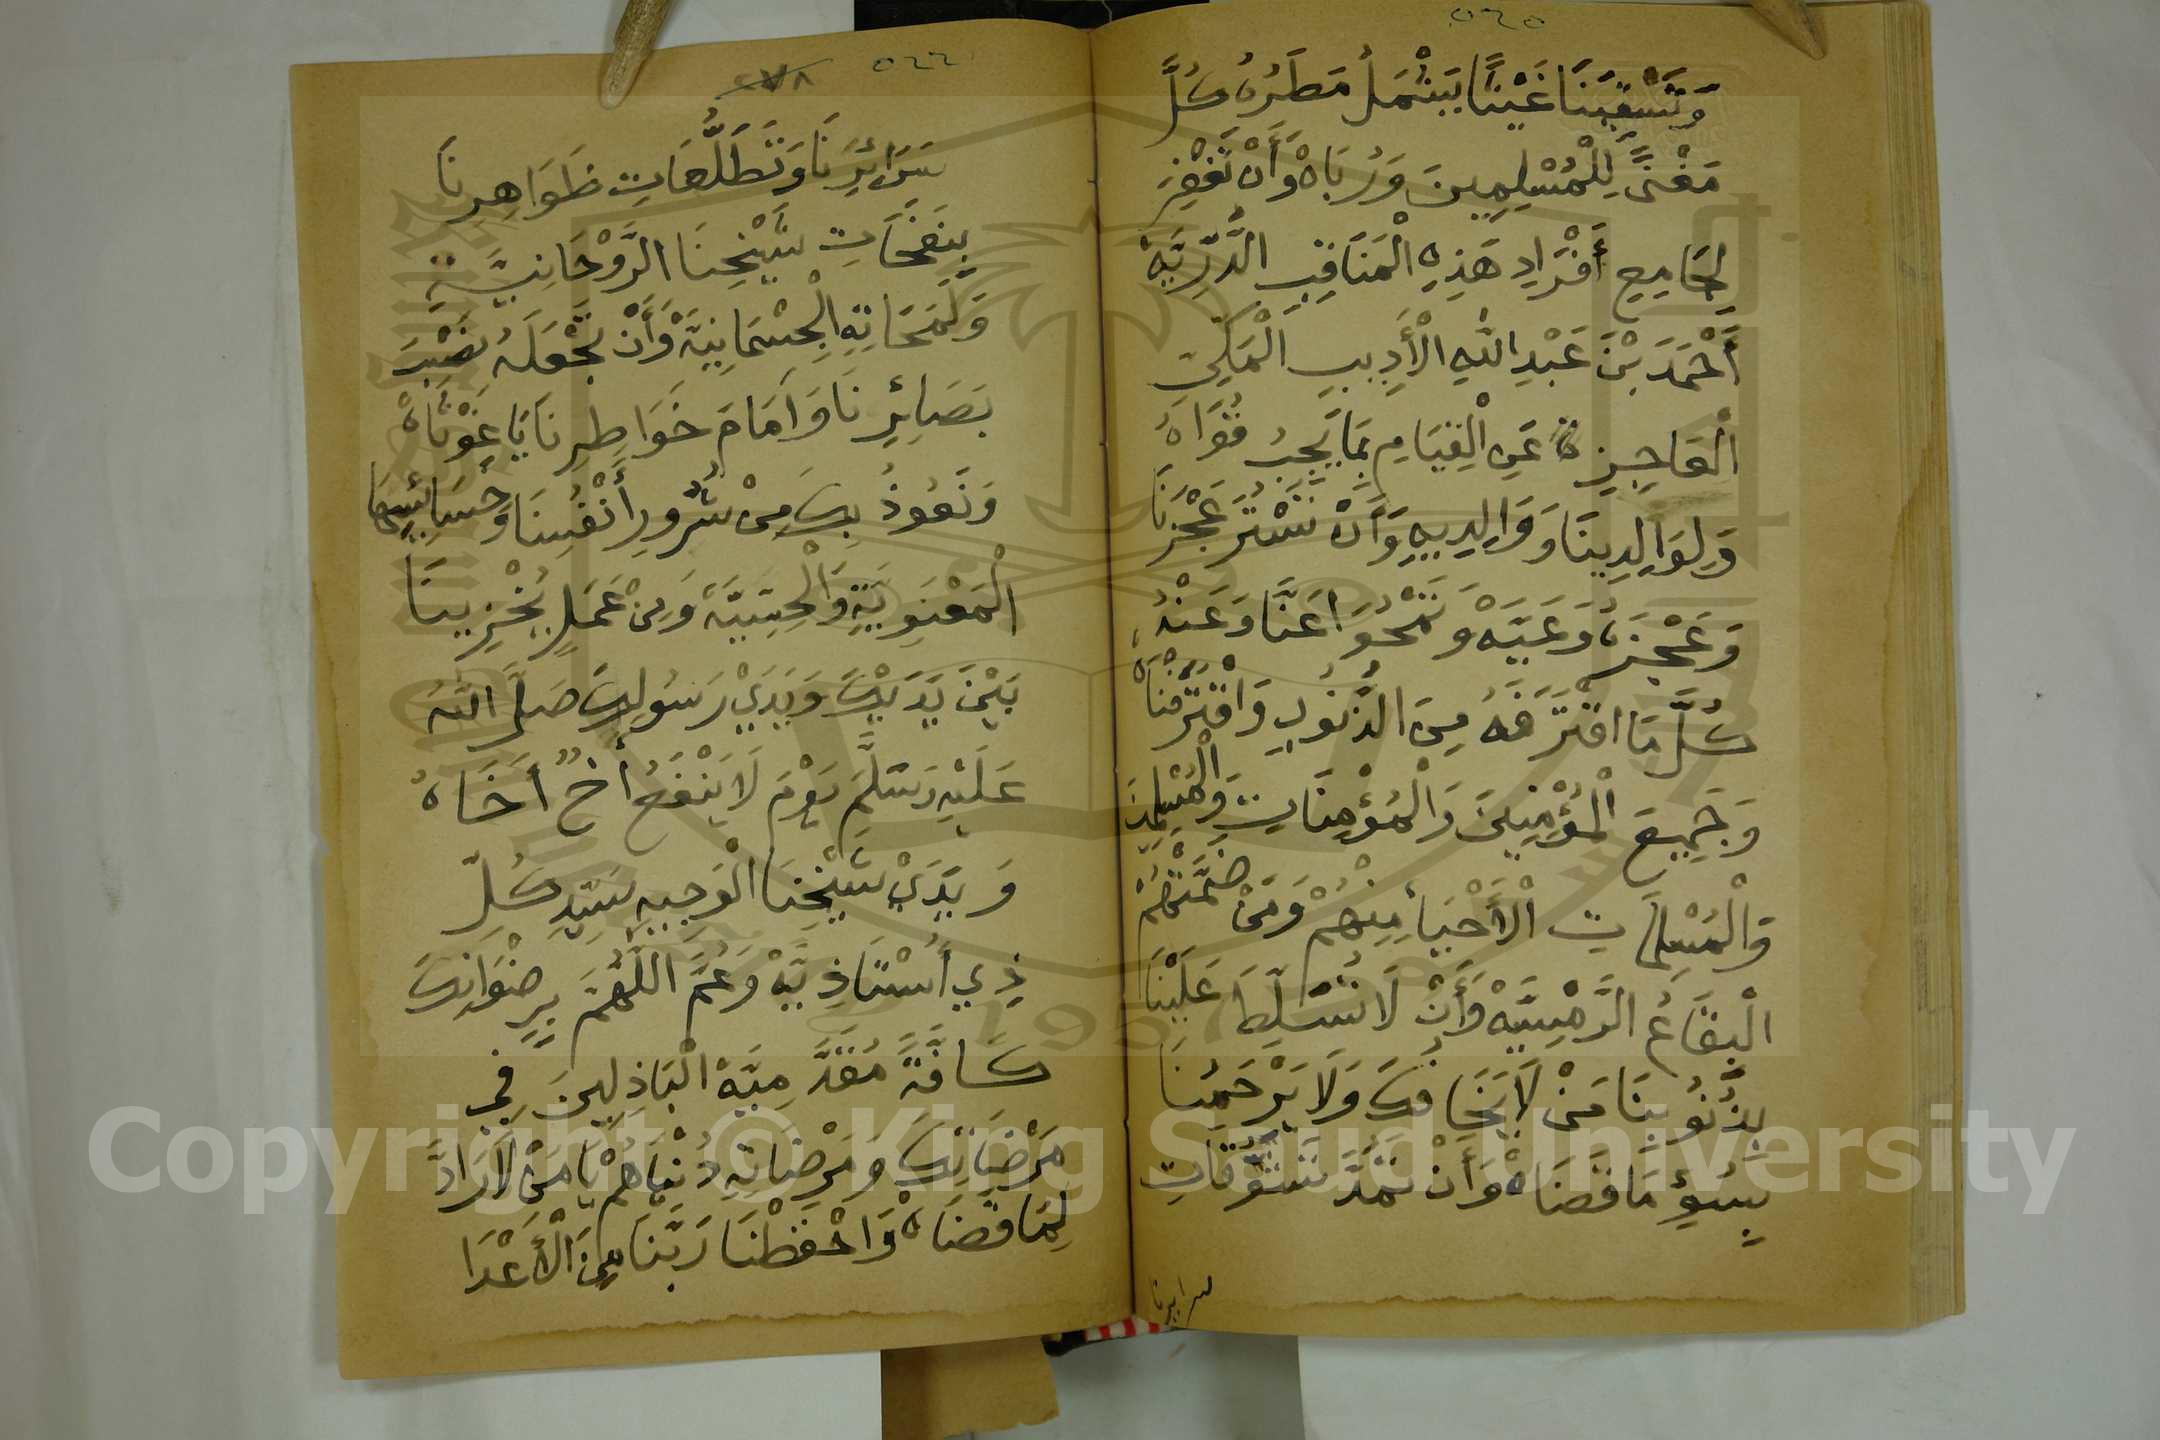 ٥٦٥
وَتَسْقِيَنَا غَيْثًا يَشْمَلُ مَطَرُهُ كُلَّ
مَغْنًى لِلْمُسْلِمِينَ وَرُبَاهْ وَأَنْ تَغْفِرَ
لِجَامِعِ أَفْرَادِ هَذِهِ الْمَنَاقِبِ الدُّرِّيَّهْ
أَحْمَدَ بْنَ عَبْدِ اللهِ الْأَدِيبِ الْمَكِّيّ
الْعَاجِزِ عَنِ الْقِيَامِ بِمَا يَجِبُ قُوَاهُ
وَلِوَالِدِينَا وَوَالِدِيهِ وَأَنْ تَسْتُرَ عَجْزَنَا
وَعَجْزَهُ وَعَيَّهْ وَتَمْحُوَ اعَنَّا وَعَنْهُ
كُلَّ مَا اقْتَرَفَهُ مِنَ الذُّنُوبِ وَاقْتَرَفْنَاهْ
وَجَمِيعَ الْمُؤْمِنِينَ وَالْمُؤْمِنَاتِ وَالْمُسْلِمِينَ
وَالْمُسْلِمَاتِ الْأَحْيَاءِ مِنْهُمْ وَمَنْ ضَمَّتْهُمْ
الْبِقَاعُ الرَّمْسِيَّهْ وَأَنْ لَا تُسَلِّطَ عَلَيْنَا
بِذُنُوبِنَا مَنْ لَا يَخَافُكَ وَلَا يَرْحَمُنَا
بِسُوءِ مَا فَضَاهْ وَأَنْ تَمُدَّ تَشَوُّقَاتِ
سرايرنا
٥٦٦
٤٧٨
سَرَائِرِنَا وَتَطَلُّعَاتِ ظَوَاهِرِنَا
بِنَفَحَاتِ شَيْخِنَا الرَّوْحَانِيَّةِ
وَلَمَحَاتِهِ الْجِسْمَانِيَّهْ وَأَنْ تَجْعَلَهُ نَصْبَ
بَصَائِرِنَا وَأَمَامَ خَوَاطِرِنَا يَا غَوْثَاهْ
وَنَعُوذُ بِكَ مِنْ شُرُورِ أَنْفُسِنَا وَخَسَائِسِهَا
الْمَعْنَوِيَّةِ وَالْحِسِّيَّهْ وَمِنْ عَمَلٍ يُخْزِينَا
بَيْنَ يَدَيْكَ وَيَدَيْ رَسُولِكَ صَلَّى اللهُ
عَلَيْهِ وَسَلَّمَ يَوْمَ لَا يَنْفَعُ أَخٌ أَخَاهُ
وَيَدَيْ شَيْخِنَا الْوَجِيهِ سَيِّدِ كُلِّ
ذِي أُسْتَاذِيَّهْ وَعُمَّ اللَّهُمَّ بِرِضْوَانِكَ
كَافَّةً مُقَدَّمِيَّهْ الْبَاذِلِينَ فِي
مَرْضَاتِكَ وَمَرْضَاتِهِ دُنْيَاهُمْ يَا مَنْ لَا رَادَّ
لِمَا قَضَاهْ وَاحْفَظْنَا رَبَّنَا مِنَ الْأَعْدَا
Copyright © King Saud University
1957